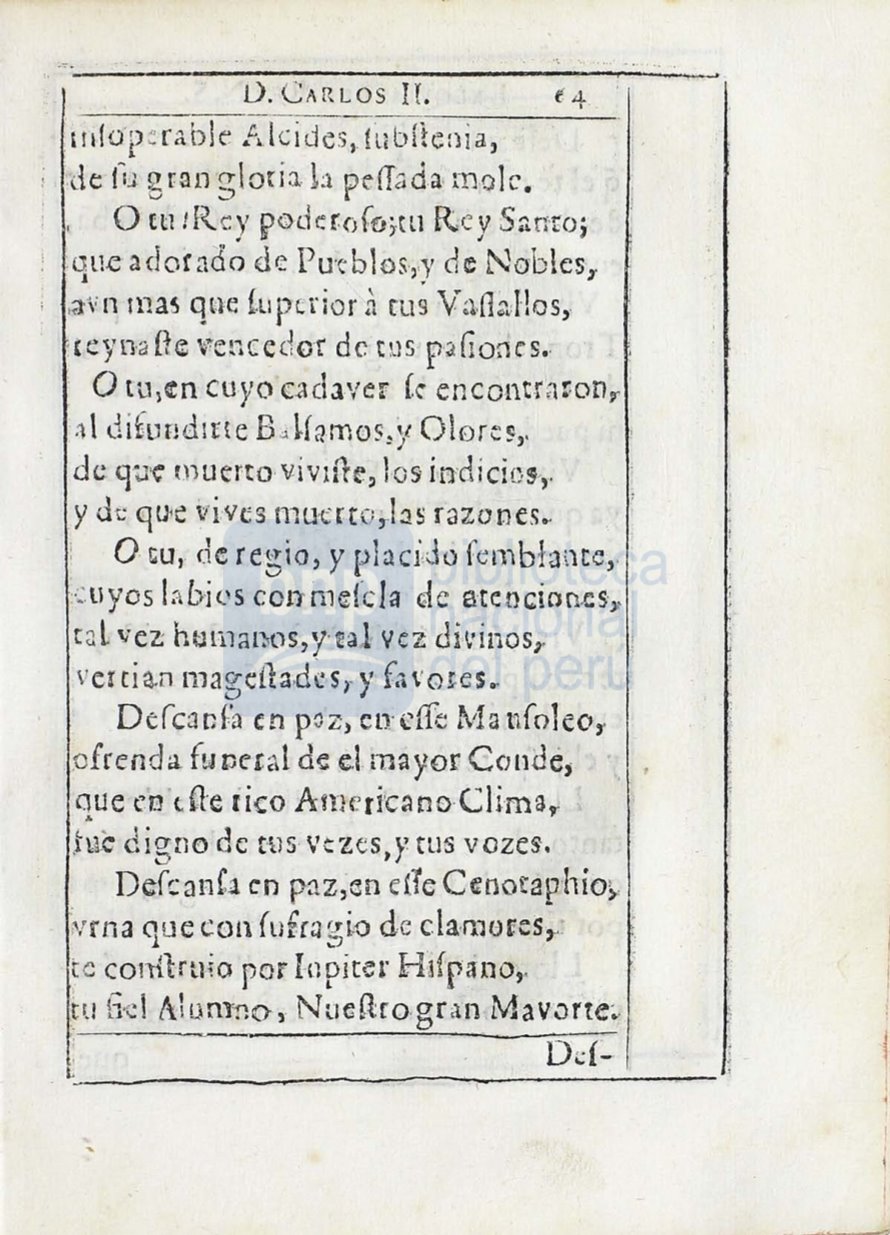 D. CARLOS II. 64
insoperable Alcides, ſubſtenia,
de ſu gran gloria la peſſada mole.
O tu! Rey poderoſo; tu Rey Santo;
que adorado de Pueblos, y de Nobles,
avn mas que ſuperior à tus Vaſſallos,
reynaſte vencedor de tus paſiones.
O tu, en cuyo cadaver ſe encontraron,
al difundirte Balſamos, y Olores,
de que muerto viviſte, los indicios,
y de que vives muerto, las razones.
O tu, de regio, y placido ſemblante,
cuyos labios con meſcla de atenciones,
tal vez humanos, y tal vez divinos,
vertian mageſtades, y favores.
Deſcanſa en paz, en eſſe Mauſoleo,
ofrenda funeral de el mayor Conde,
que en eſte rico Americano Clima,
fue digno de tus vezes, y tus vozes.
Deſcanſa en paz, en eſſe Cenotaphio,
vrna que con ſufragio de clamores,
te conſtruio por Iupiter Hiſpano,
tu fiel Alumno, Nueſtro gran Mavorte.
Deſ-
bnp biblioteca
nacional
del perú